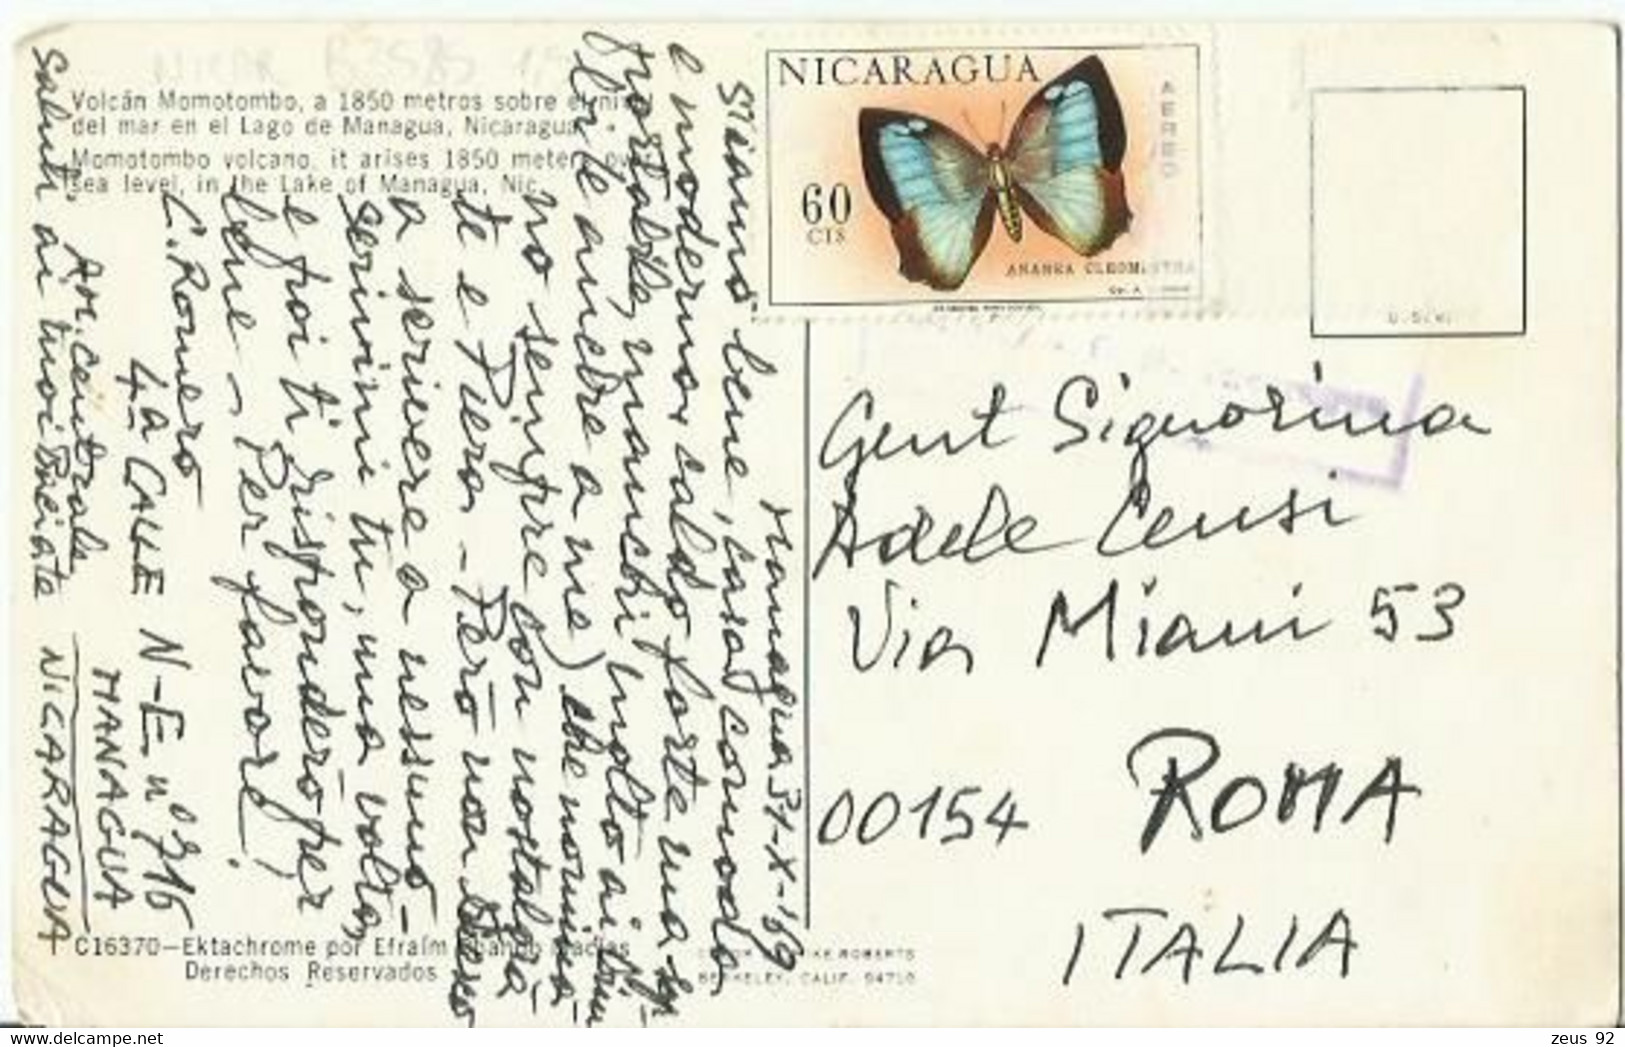 NICAR B3585
Volcán Momotombo, a 1850 metros sobre el
del mar en el Lago de Managua, Nicaragua.
Momotombo volcano, it arises 1850 meters
sea level, in the Lake of Managua, Nic.
NICARAGUA
AEREO
60
CTS
Managua 31-X-'69
Stiamo bene, casa comoda
e moderna, caldo forte ma
portabile, manchi molto ai
(e anche a me) che
no sempre con nostalgia
te e Piera - Però non
a scrivere a nessuno -
scrivimi tu, una volta,
e poi ti risponderò per
bene - Per favore!
C. Romero
4ª CALLE N-E nº 716
An. Centrale MANAGUA
Saluti ai tuoi Baciate NICARAGUA
Gent Signorina
Adele Censi
Via Miani 53
00154 ROMA
ITALIA
C16370—Ektachrome por Efraím
Derechos Reservados
ROBERTS
BERKELEY, CALIF. 94710
zeus 92